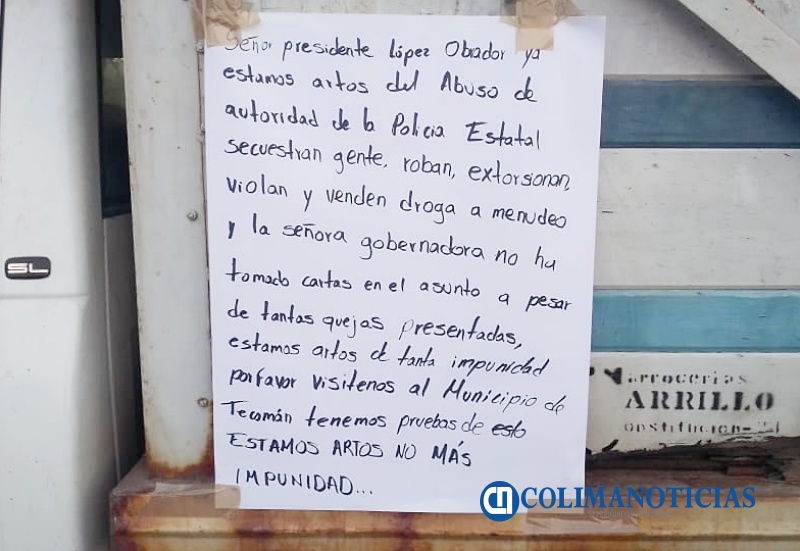 Señor presidente López Obrador ya
estamos artos del Abuso de
autoridad de la Policia Estatal
secuestran gente, roban, extorsonan,
violan y venden droga a menudeo
y la señora gobernadora no ha
tomado cartas en el asunto a pesar
de tantas quejas presentadas,
estamos artos de tanta impunidad
por favor visitenos al Municipio de
Tecomán tenemos pruebas de esto
ESTAMOS ARTOS NO MÁS
IMPUNIDAD...
SL
arrocerias
ARRILLO
onstitucion-21
COLIMANOTICIAS